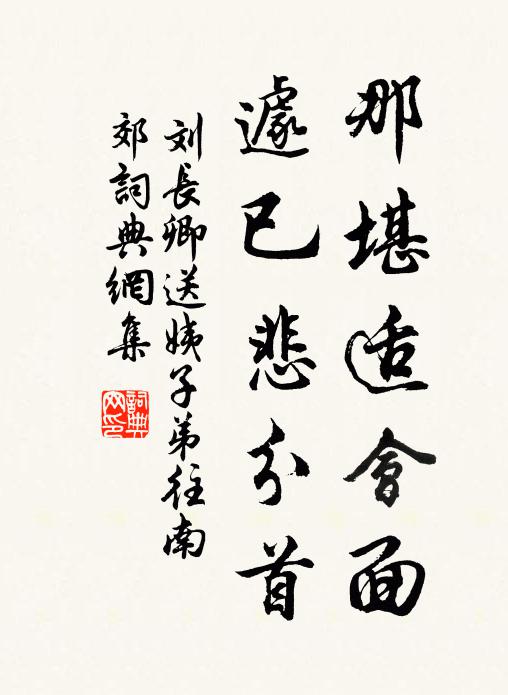 那堪适會面
遽已悲分首
刘長卿送姨子弟往南
郊詞典網集
詞典
网印